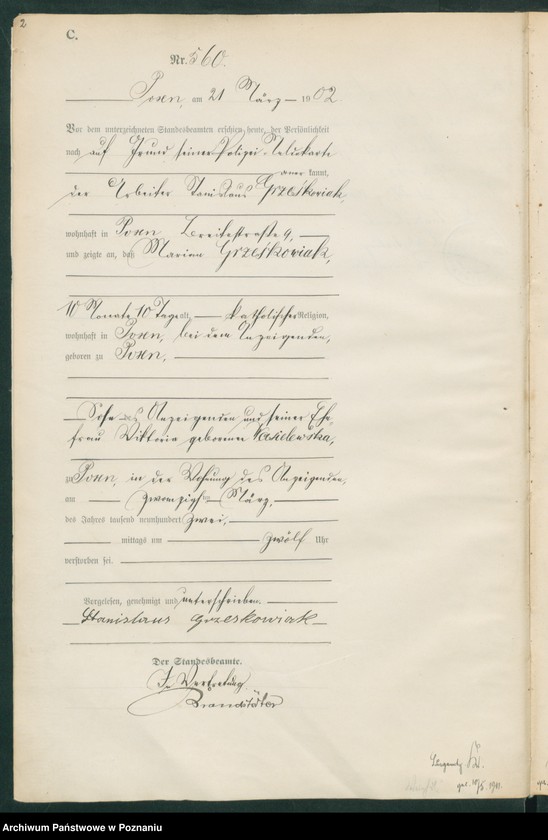 2
C.
Nr. 560.
Posen, am 21 März 1902.
Vor dem unterzeichneten Standesbeamten erschien heute, der Persönlichkeit
nach auf Grund seiner Polizei-Meldekarte
anerkannt,
der Arbeiter Stanislaus Grześkowiak,
wohnhaft in Posen Breitestraße 9,
und zeigte an, daß Marian Grześkowiak,
10 Monate 10 Tage alt, katholischer Religion,
wohnhaft in Posen, bei dem Anzeigenden,
geboren zu Posen,
Sohn des Anzeigenden und seiner Ehe-
frau Viktoria geborenen Wasielewska,
zu Posen, in der Wohnung des Anzeigenden,
am zwanzigsten März,
des Jahres tausend neunhundert zwei,
mittags um zwölf Uhr
verstorben sei.
Vorgelesen, genehmigt und unterschrieben.
Stanislaus Grzeskowiak
Der Standesbeamte.
In Vertretung.
Brandstäter
geb. 10/5. 1901.
Archiwum Państwowe w Poznaniu